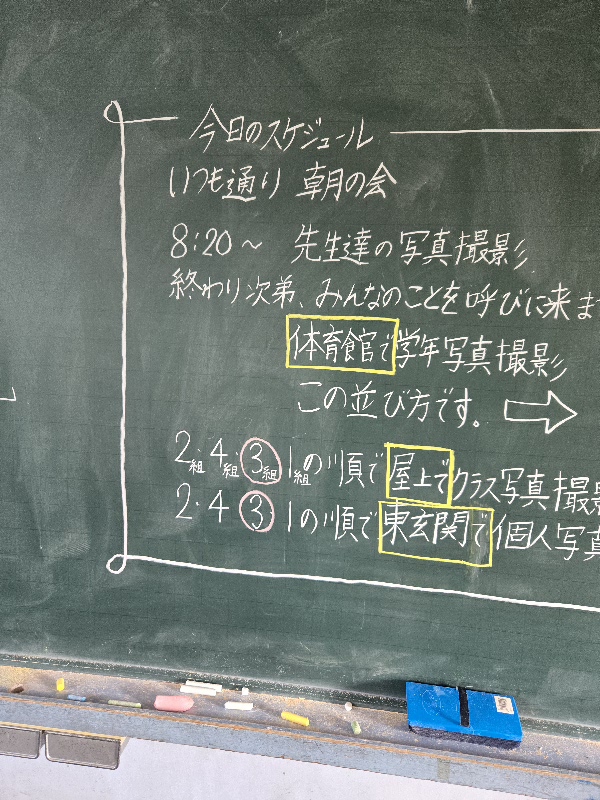 今日のスケジュール
いつも通り 朝の会
8:20～ 先生達の写真撮影
終わり次第、みんなのことを呼びに来ま
体育館で学年写真撮影
この並び方です。⇨
2組・4組・③組 1組の順で屋上でクラス写真撮影
2・4 ③ 1の順で東玄関で個人写真